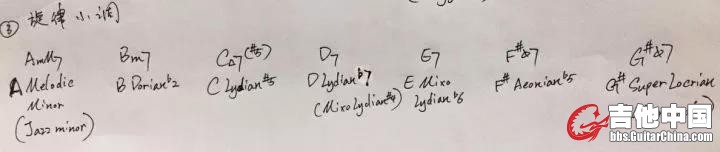 ③ 旋律小调
AmM7 Bm7 C△7(#5) D7 E7 F#ø7 G#ø7
A Melodic B Dorian♭2 C Lydian#5 D Lydian♭7 E Mixo F# Aeonian♭5 G# Super Locrian
Minor (Mixo Lydian#4) Lydian♭6
(Jazz minor)
吉他中国
bbs.GuitarChina.com